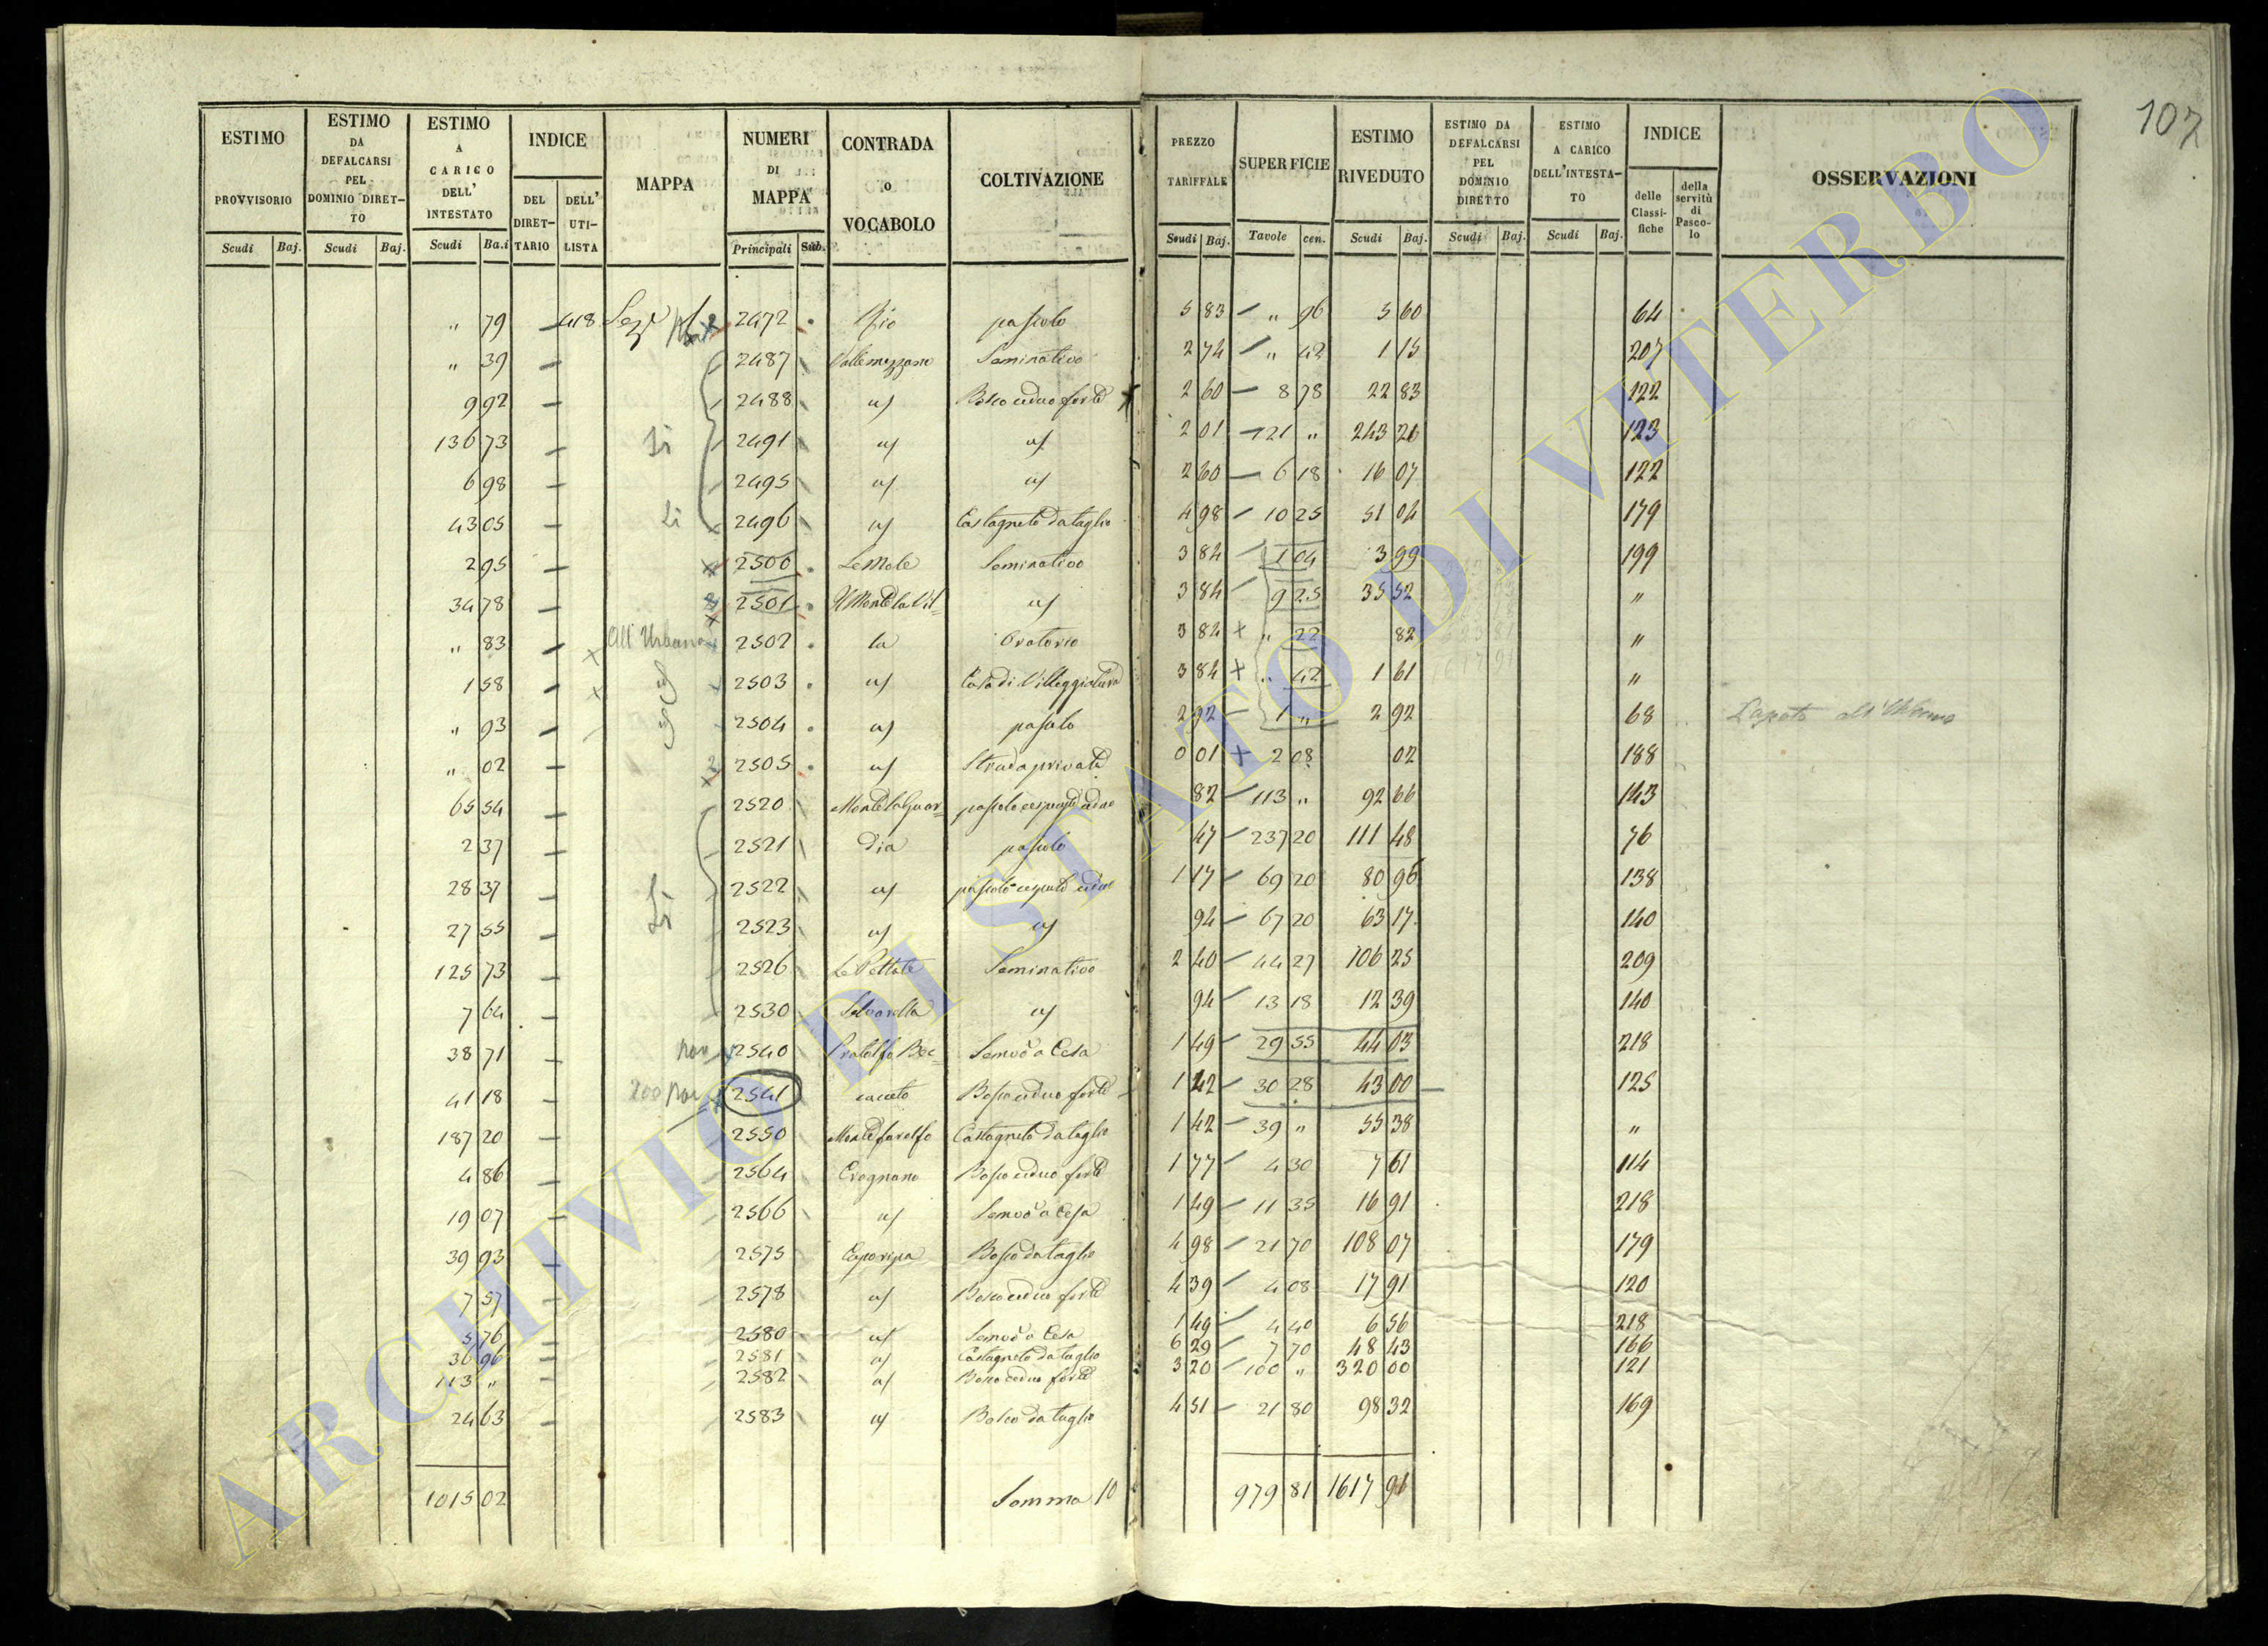 107
ESTIMO PROVVISORIO Scudi Baj.
ESTIMO DA DEFALCARSI PEL DOMINIO DIRET-TO Scudi Baj.
ESTIMO A CARICO DELL' INTESTATO Scudi Ba.i
INDICE DEL DIRET-TARIO DELL' UTI-LISTA
MAPPA
NUMERI DI MAPPA Principali Sub.
CONTRADA o VOCABOLO
COLTIVAZIONE
PREZZO TARIFFALE Scudi Baj.
SUPERFICIE Tavole cen.
ESTIMO RIVEDUTO Scudi Baj.
ESTIMO DA DEFALCARSI PEL DOMINIO DIRETTO Scudi Baj.
ESTIMO A CARICO DELL'INTESTA-TO Scudi Baj.
INDICE delle Classi-fiche della servitù di Pasco-lo
OSSERVAZIONI
" 79 418 2472 Rio pascolo 5 83 " 96 5 60 64
" 39 2487 Vallemezzano Seminativo 2 74 " 42 1 15 207
9 92 2488 id Bosco ceduo forte 2 60 8 78 22 83 122
136 73 Si 2491 id id 2 01 121 " 243 21 123
6 98 2495 id id 2 60 6 18 16 07 122
43 05 Si 2496 id Castagneto da taglio 4 98 10 25 51 04 179
2 95 2500 Le Mole Seminativo 3 84 1 04 3 99 199
34 78 2501 Il Monte la Vil= id 3 84 9 25 35 52 "
" 83 All'Urbano 2502 la Oratorio 3 84 " 22 82 "
1 58 id 2503 id Casa di Villeggiatura 3 84 " 42 1 61 "
" 93 id 2504 id pascolo 2 92 1 " 2 92 68 all'Urbano
" 02 2505 id Strada privata 0 01 2 08 02 188
65 54 2520 Monte la Guar= pascolo cespugto ceduo 82 113 " 92 66 143
2 37 2521 dia pascolo 47 237 20 111 48 76
28 37 Si 2522 id pascolo cespugto ceduo 1 17 69 20 80 96 138
27 55 Si 2523 id id 94 67 20 63 17 140
125 73 2526 Le Pettate Seminativo 2 40 44 27 106 25 209
7 64 2530 Selvarella id 94 13 18 12 39 140
38 71 Nov 2540 Semvo a Cesa 1 49 29 55 44 03 218
41 18 Nov 2541 Bosco ceduo forte 1 42 30 28 43 00 125
187 20 2550 Castagneto da taglio 1 42 39 " 55 38 "
4 86 2564 Crognano Bosco ceduo forte 1 77 4 30 7 61 114
19 07 2566 id Semvo a Cesa 1 49 11 35 16 91 218
39 93 2575 Caporipa Bosco da taglio 4 98 21 70 108 07 179
7 57 2578 id Bosco ceduo forte 4 39 4 08 17 91 120
5 76 2580 id Semvo a Cesa 1 49 4 40 6 56 218
36 96 2581 id Castagneto da taglio 6 29 7 70 48 43 166
113 " 2582 id Bosco ceduo forte 3 20 100 " 320 00 121
24 63 2583 id Bosco da taglio 4 51 21 80 98 32 169
1015 02 Somma 10 979 81 1617 91
ARCHIVIO DI STATO DI VITERBO